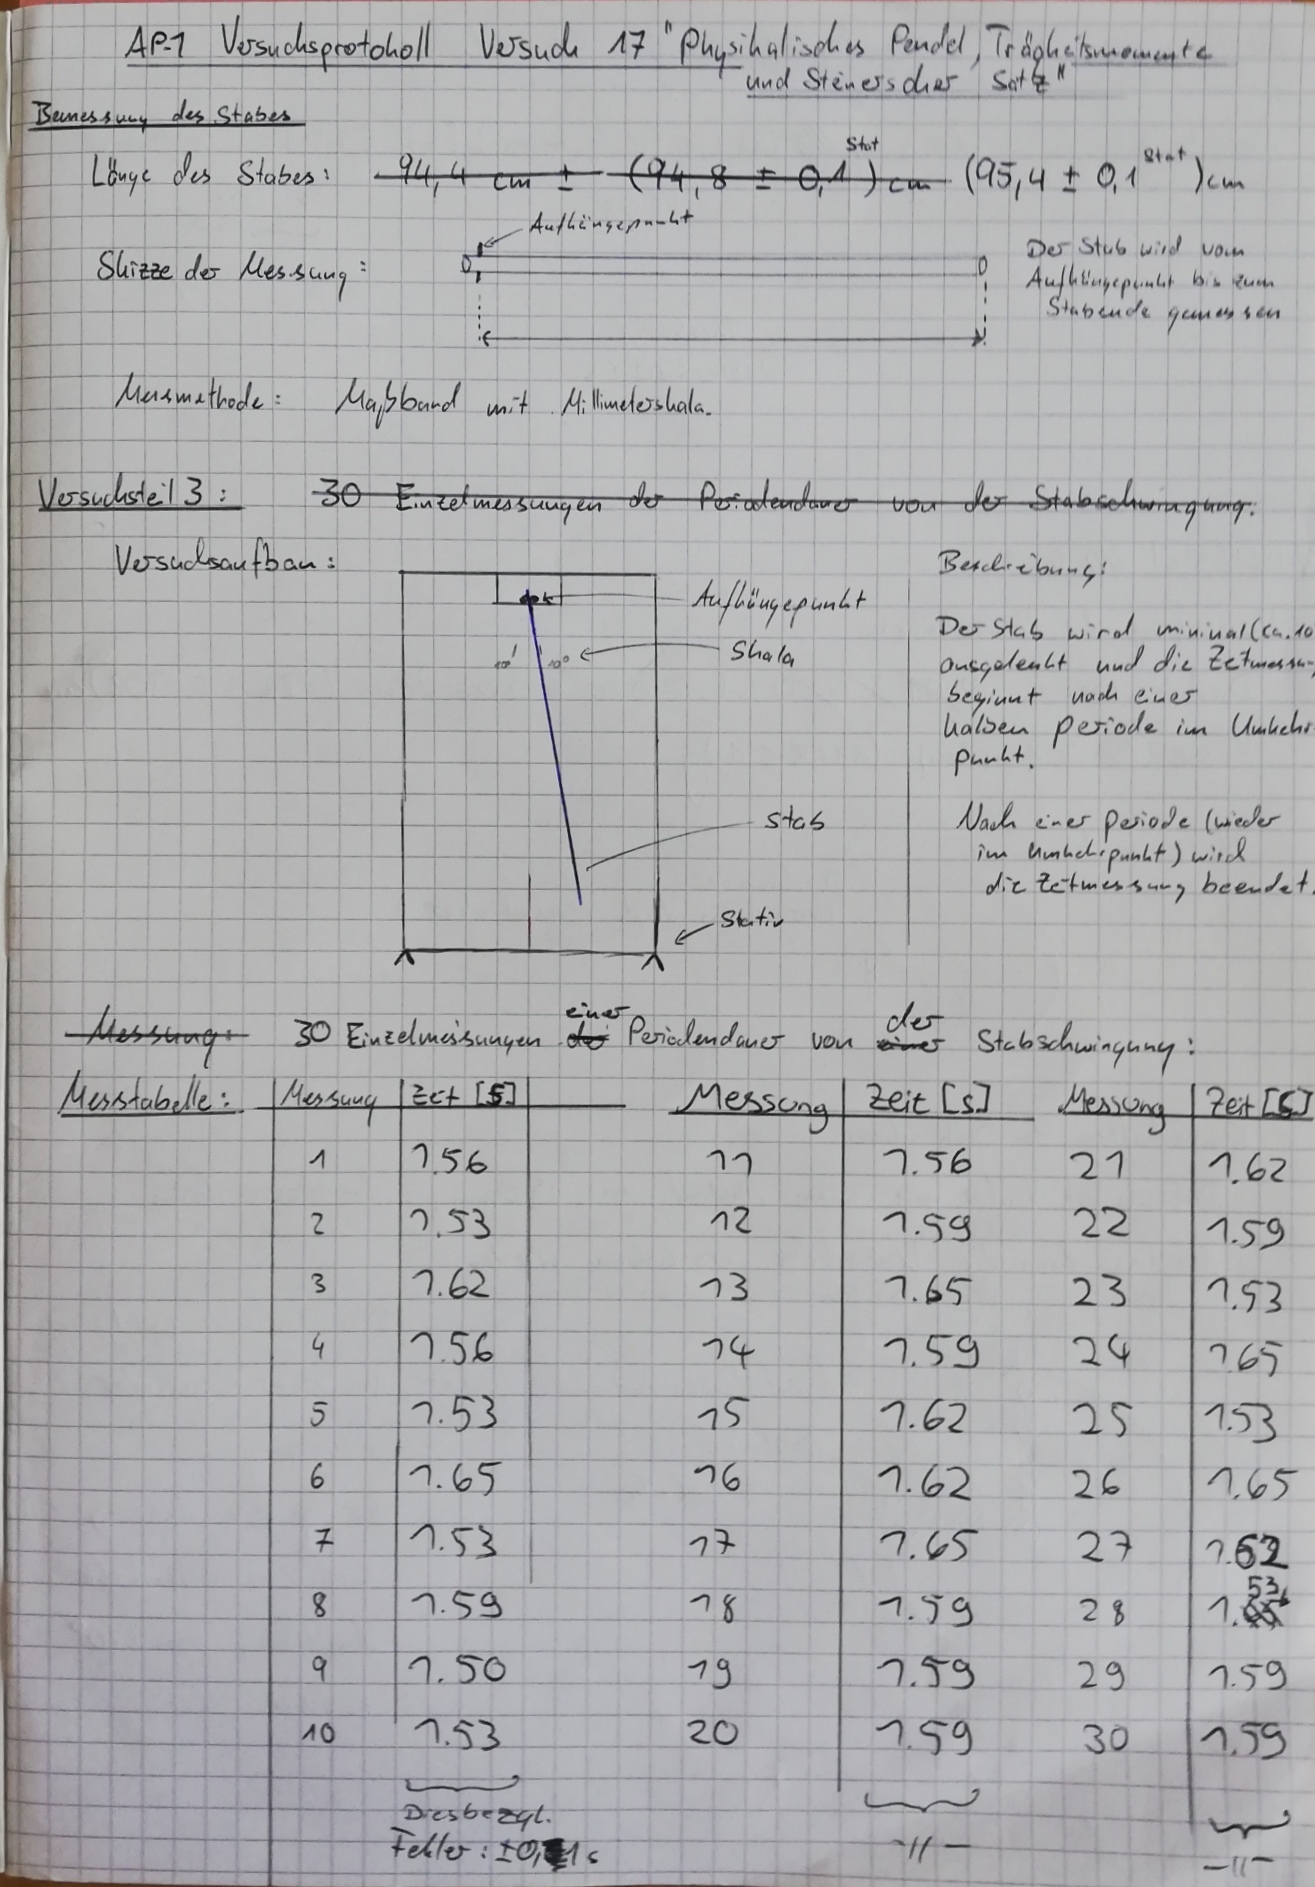 AP-1 Versuchsprotokoll Versuch 17 "Physikalisches Pendel, Trägheitsmomente
und Steinerscher Satz"
Bemessung des Stabes
Länge des Stabes: 94,4 cm ± (94,8 ± 0,1 Stat) cm (95,4 ± 0,1 Stat) cm
Aufhängepunkt
Skizze der Messung:
Der Stab wird vom
Aufhängepunkt bis zum
Stabende gemessen
Messmethode: Maßband mit Millimeterskala.
Versuchsteil 3: 30 Einzelmessungen der Periodendauer von der Stabschwingung.
Versuchsaufbau:
Aufhängepunkt
10° 10°
Skala
Stab
Stativ
Beschreibung:
Der Stab wird minimal (ca. 10
ausgelenkt und die Zeitmessu-
beginnt nach einer
halben Periode im Umkehr-
punkt.
Nach einer Periode (wieder
im Umkehrpunkt) wird
die Zeitmessung beendet.
Messung: 30 Einzelmessungen der einer Periodendauer von einer der Stabschwingung:
Messtabelle: Messung Zeit [s] Messung Zeit [s] Messung Zeit [s]
1 1.56 11 1.56 21 1.62
2 1.53 12 1.59 22 1.59
3 1.62 13 1.65 23 1.53
4 1.56 14 1.59 24 1.65
5 1.53 15 1.62 25 1.53
6 1.65 16 1.62 26 1.65
7 1.53 17 1.65 27 1.62
8 1.59 18 1.59 28 1.53
9 1.50 19 1.59 29 1.59
10 1.53 20 1.59 30 1.59
Diesbezgl.
Fehler: ±0,1 s
-||- -||-